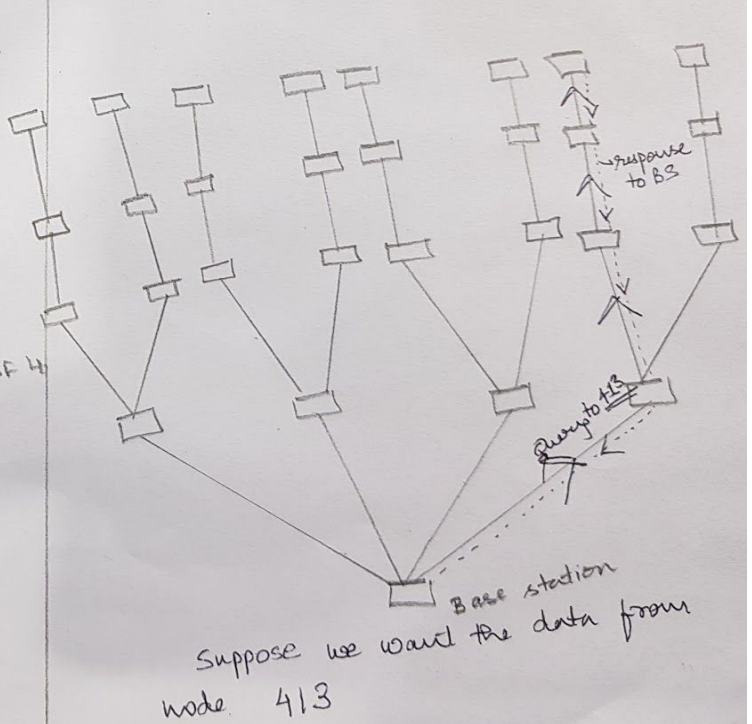 response
to BS
Query to 413
Base station
Suppose we want the data from
node 413